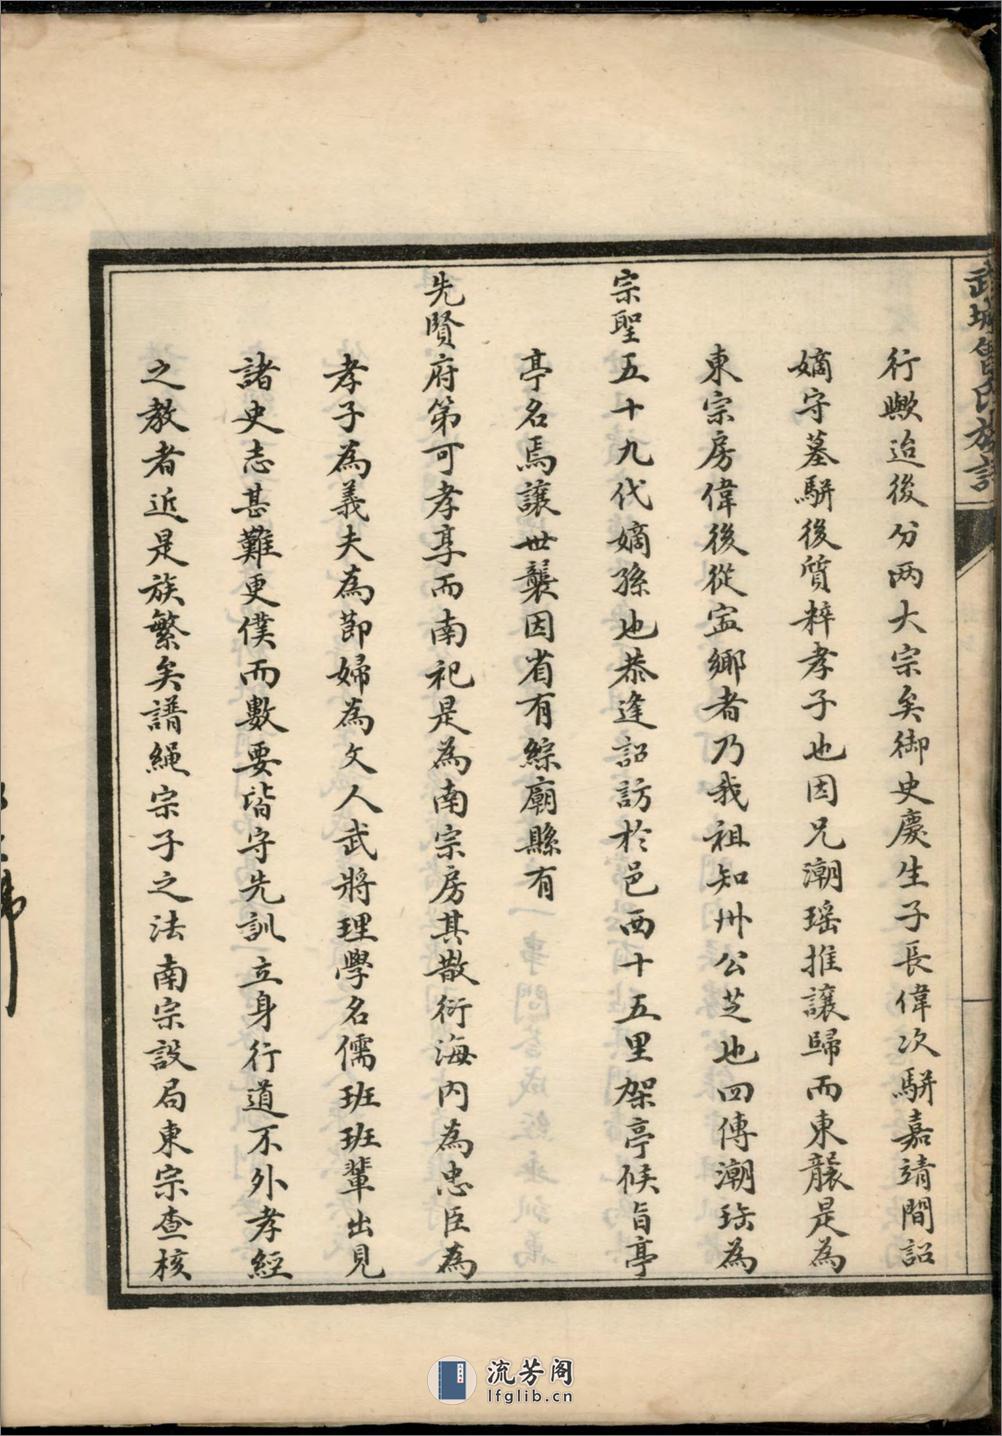 武城曾氏族譜
行歟迨後分两大宗矣御史慶生子長偉次駢嘉靖間詔
嫡守墓駢後質粹孝子也因兄潮瑶推讓歸而東襲是為
東宗房偉後從寍鄉者乃我祖知州公芝也四傳潮珍為
宗聖五十九代嫡孫也恭逢詔訪於邑西十五里架亭候旨亭
亭名焉讓世襲因省有綜廟縣有
先賢府第可孝享而南祀是為南宗房其散衍海内為忠臣為
孝子為義夫為節婦為文人武將理學名儒班班輩出見
諸史志甚難更僕而數要皆守先訓立身行道不外孝經
之教者近是族繁矣譜繩宗子之法南宗設局東宗查核
流芳阁
lfglib.cn